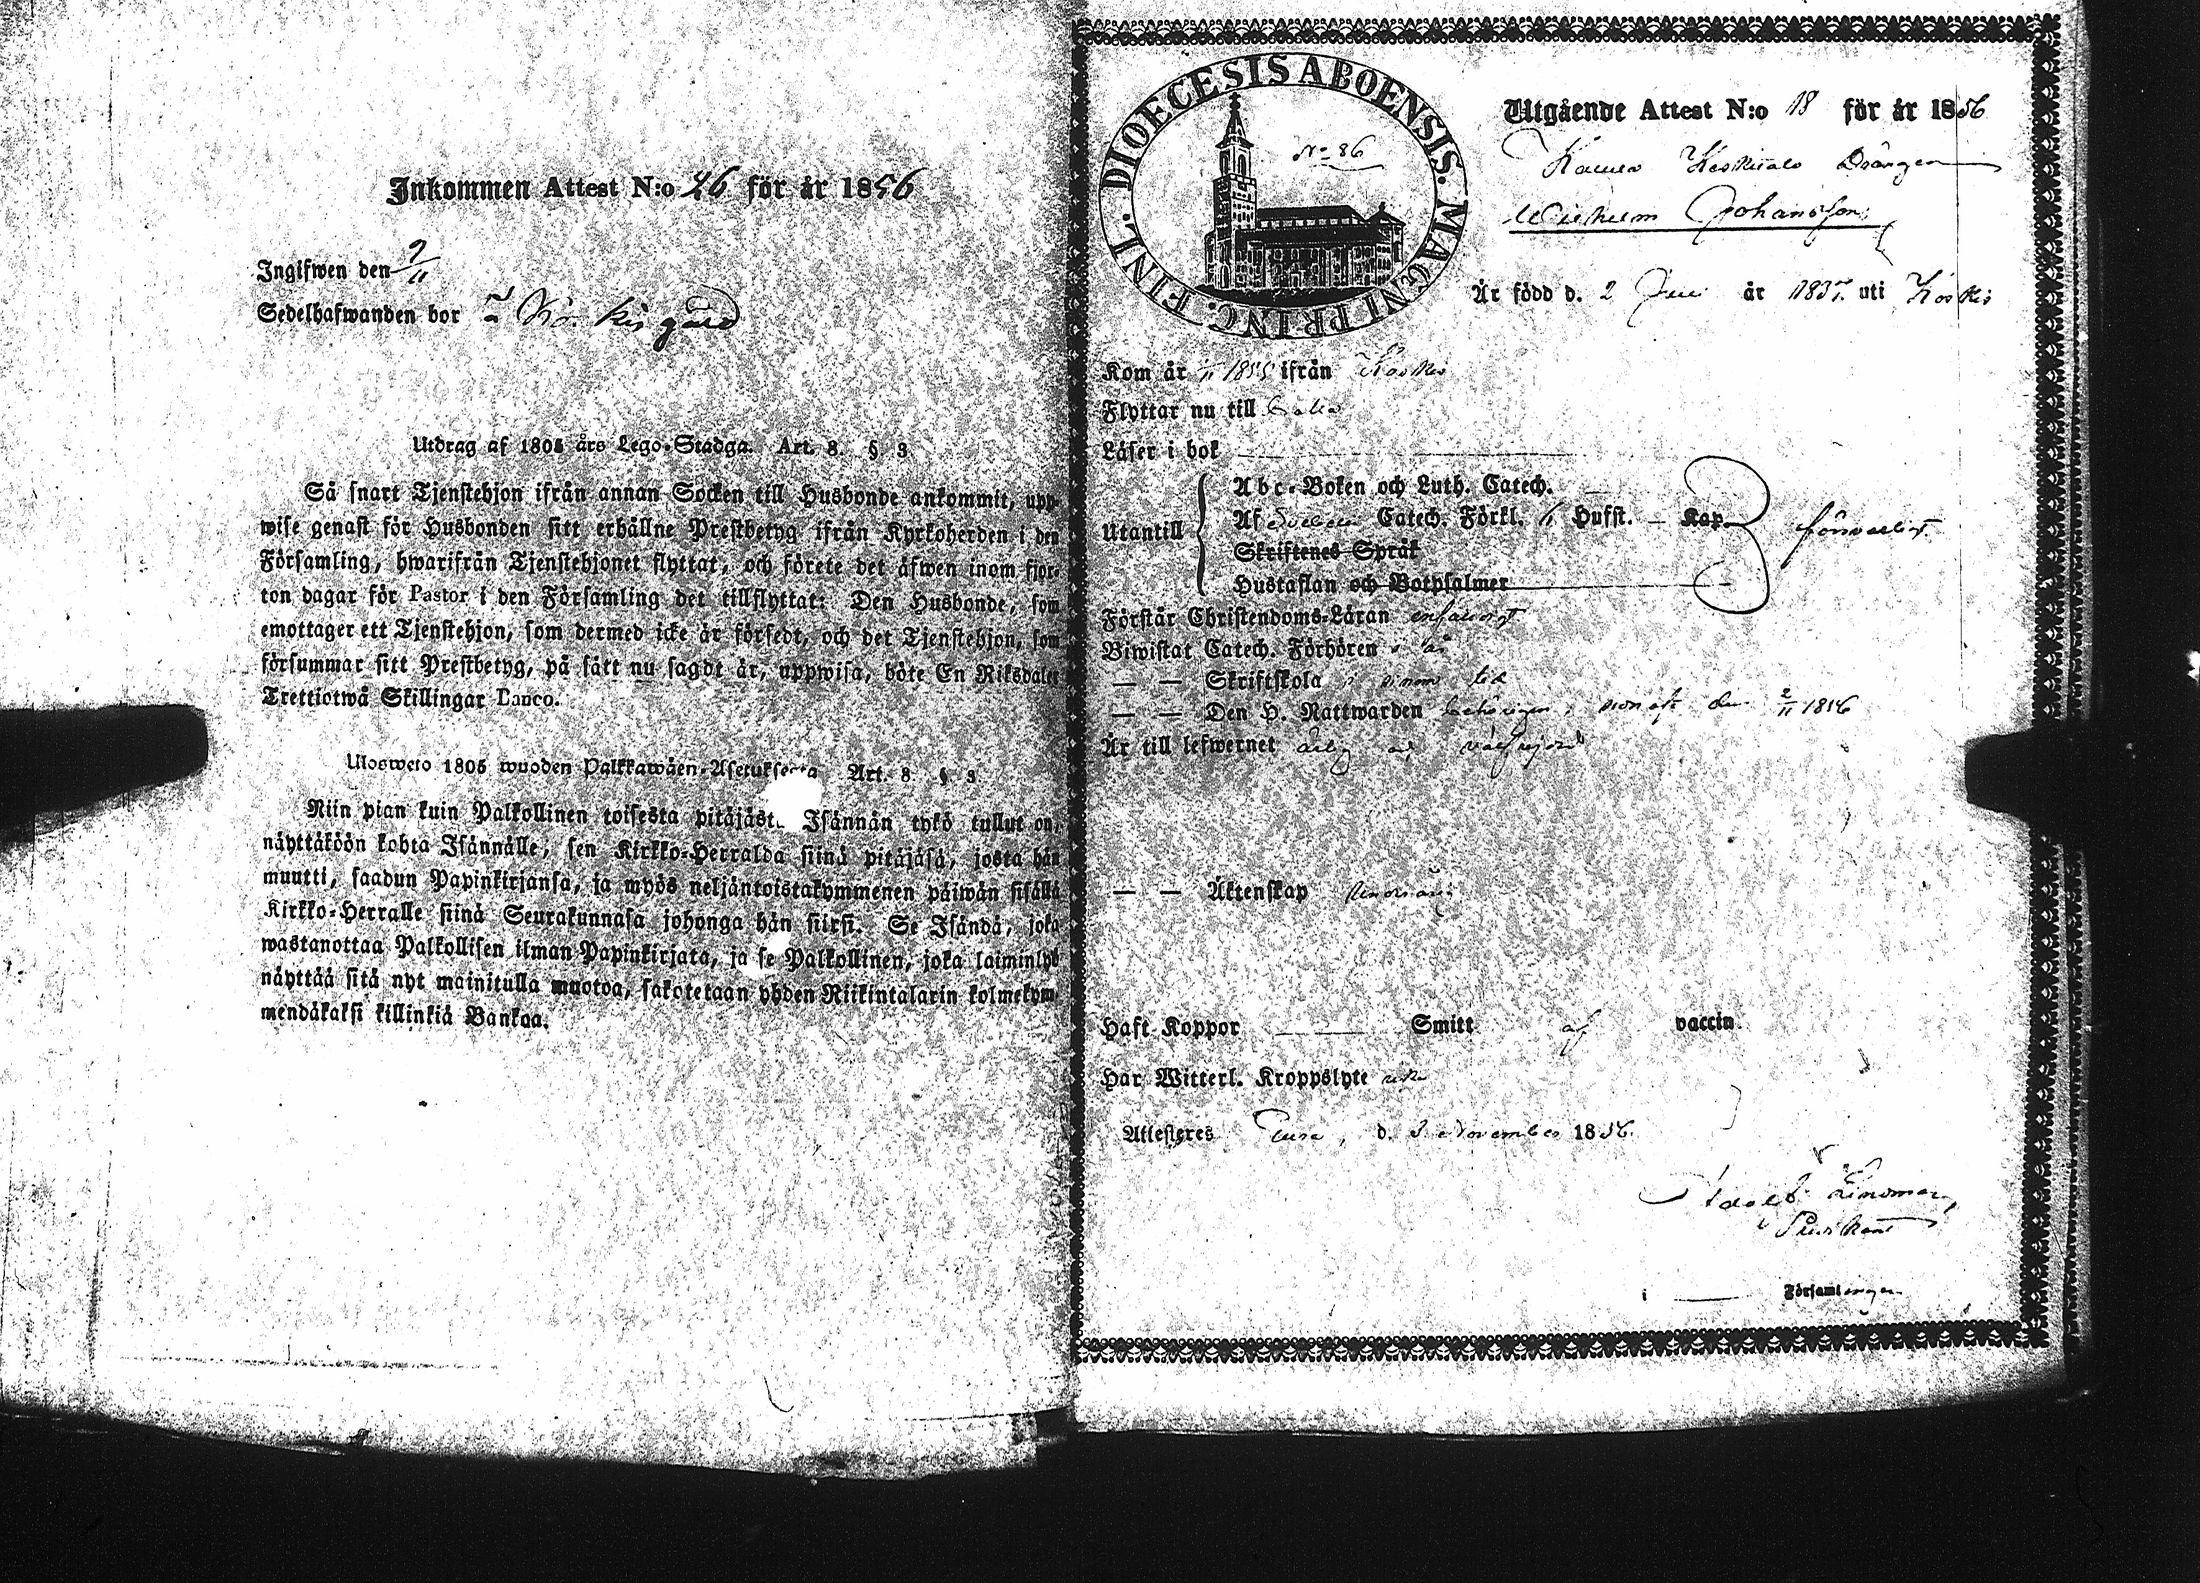 Inkommen Attest N:o 26 för år 1856
Ingifwen den 9/11
Sedelhafwanden bor å
Utdrag af 1805 års Lego-Stadga. Art. 8. § 3
Så snart Tjenstehjon ifrån annan Socken till Husbonde ankommit, upp-
wise genast för Husbonden sitt erhållne Prestbetyg ifrån Kyrkoherden i den
Församling, hwarifrån Tjenstehjonet flyttat, och förete det äfwen inom fjor-
ton dagar för Pastor i den Församling det tillflyttat: Den Husbonde, som
emottager ett Tjenstehjon, som dermed icke är försedt, och det Tjenstehjon, som
försummar sitt Prestbetyg, på sätt nu sagdt är, uppwisa, böte En Riksdaler
Trettiotwå Skillingar Banco.
Ulosweto 1805 wuoden Palkkawäen-Asetuksesta Art. 8 § 3
Niin pian kuin Palkollinen toisesta pitäjäst Isännän tykö tullut on,
näyttäköön kohta Isännälle, sen Kirkko-Herralda siinä pitäjäsä, josta hän
muutti, saadun Papinkirjansa, ja myös neljäntoistakymmenen päiwän sisällä
Kirkko-Herralle siinä Seurakunnasa johonga hän siirsi. Se Isändä, joka
wastanottaa Palkollisen ilman Papinkirjata, ja se Palkollinen, joka laiminlyö
näyttää sitä nyt mainitulla muotoa, sakotetaan yhden Riikintalarin kolmekym-
mendäkaksi killinkiä Bankaa.
FINL. DIOECESIS ABOENSIS. MAGNI PRINC.
No 86
Utgående Attest N:o 18 för år 1856
Drängen
Wilhelm Johansson
Är född d. 2 Juni år 1835. uti Koskis
Kom år 1855 ifrån Koskis
Flyttar nu till
Läser i bok
Utantill
Abc-Boken och Luth. Catech.
Af Svebelii Catech. Förkl. Hufst. Kap. försvarligt
Skriftenes Språk
Hustaflan och Botpsalmer
Förstår Christendoms-Läran enfaldigt
Biwistat Catech. Förhören i år
— — Skriftskola i sinom tid
— — Den H. Nattwarden behörigen, sednast den 2/11 1856
Är till lefwernet ärlig och välfrejdad
— — Äktenskap
Haft Koppor Smitt af vaccin
Har Witterl. Kroppslyte icke
Attesteres Eura, d. 3 November 1856.
Adolf Lindman
Predikant
i Församlingen